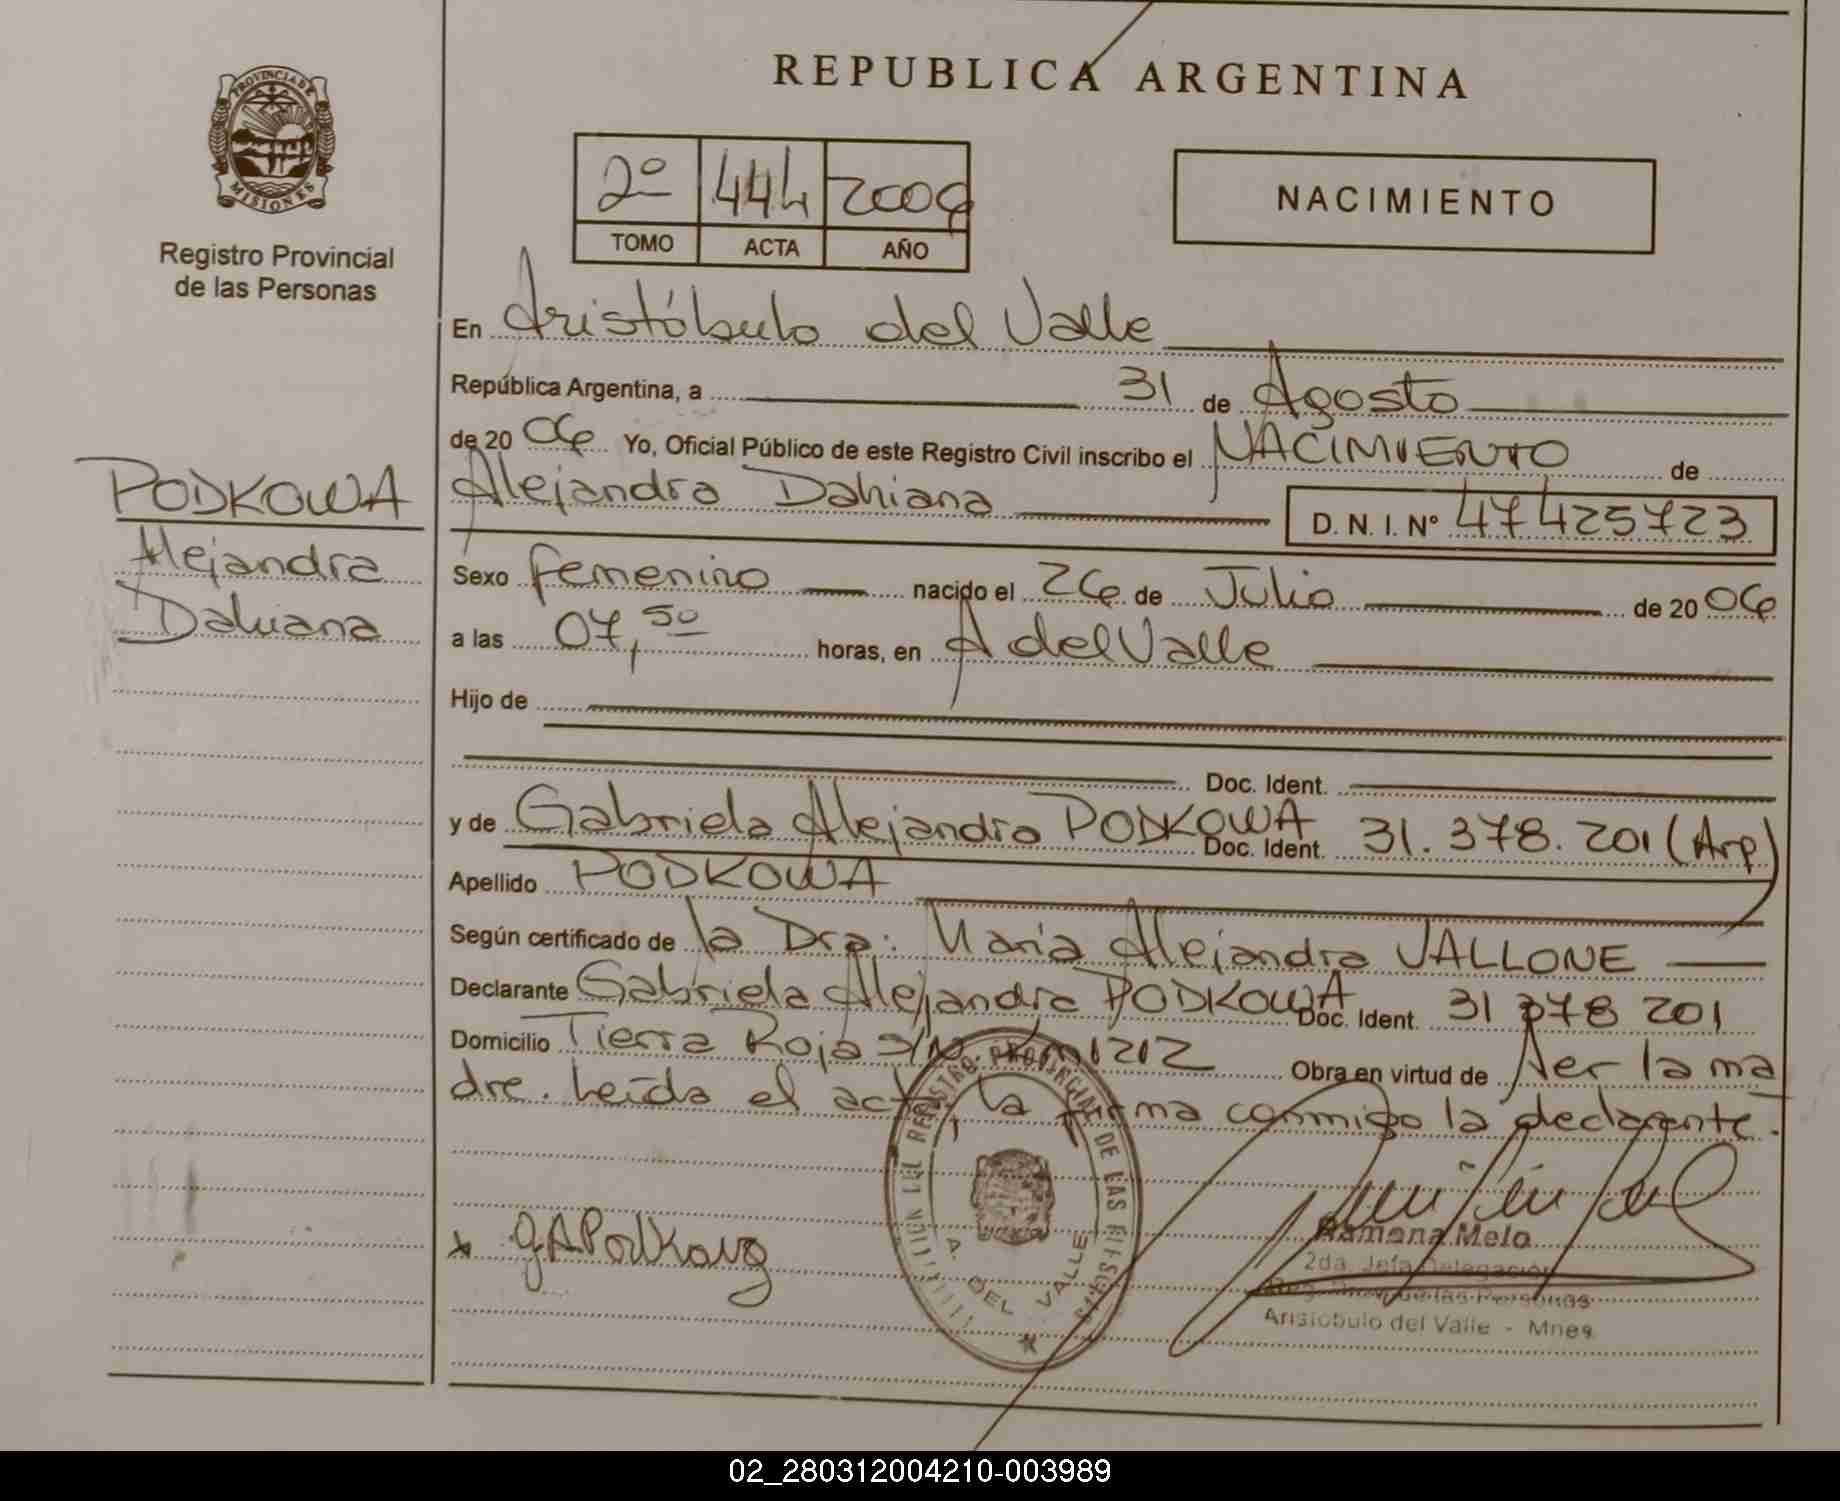 REPUBLICA ARGENTINA
PROVINCIA DE
MISIONES
Registro Provincial
de las Personas
2º 444 2006
TOMO ACTA AÑO
NACIMIENTO
En Aristóbulo del Valle
República Argentina, a 31 de Agosto
de 2006 Yo, Oficial Público de este Registro Civil inscribo el NACIMIENTO de
PODKOWA
Alejandra
Dahiana
Alejandra Dahiana D. N. I. Nº 47425723
Sexo femenino nacido el 26 de Julio de 2006
a las 07,50 horas, en A del Valle
Hijo de
Doc. Ident.
y de Gabriela Alejandra PODKOWA Doc. Ident. 31.378.201 (Arg)
Apellido PODKOWA
Según certificado de la Dra: María Alejandra VALLONE
Declarante Gabriela Alejandra PODKOWA Doc. Ident. 31 378 201
Domicilio Tierra Roja S/N Km 1212 Obra en virtud de ser la ma
dre. Leída el acta, la firma conmigo la declarante.
REGISTRO PROVINCIAL DE LAS
A. DEL VALLE
x GAPodkowa
Ramona Melo
2da. Jefa Delegación
Reg. de las Personas
Aristobulo del Valle - Mnes
02_280312004210-003989